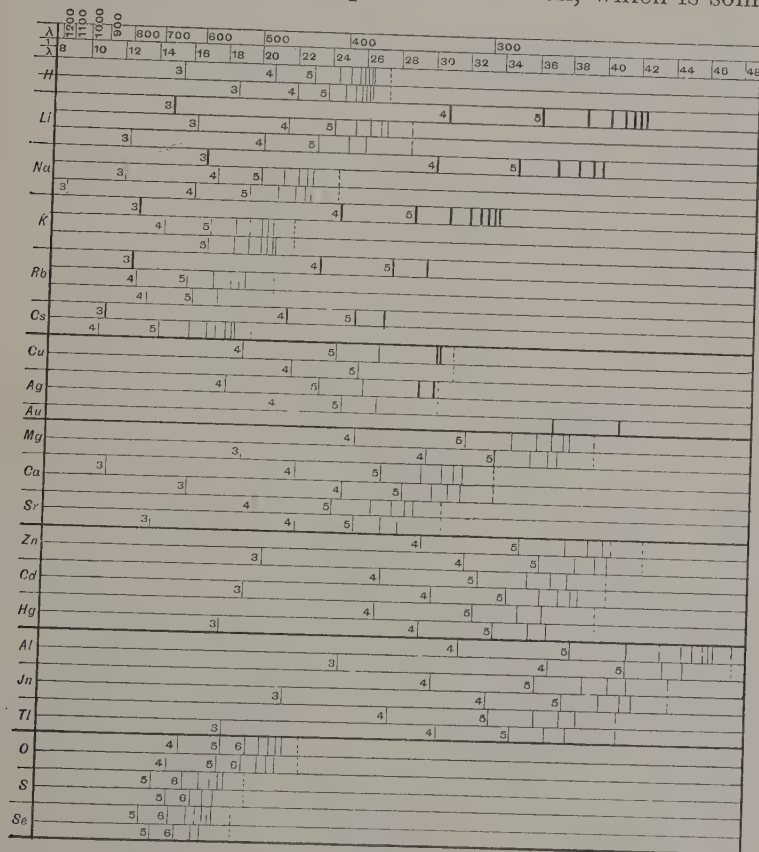 which is
λ 1200 1100 1000 900 800 700 600 500 400 300
1/λ 8 10 12 14 16 18 20 22 24 26 28 30 32 34 36 38 40 42 44 46 48
H 3 4 5
3 4 5
Li 3 4 5
3 4 5
3 4 5
Na 3 4 5
3 4 5
3 4 5
K 3 4 5
4 5
5
Rb 3 4 5
4 5
4 5
Cs 3 4 5
4 5
Cu 4 5
4 5
Ag 4 5
Au 4 5
Mg 4 5
3 4 5
Ca 3 4 5
3 4 5
Sr 4 5
3 4 5
Zn 4 5
3 4 5
Cd 4 5
3 4 5
Hg 4 5
3 4 5
Al 4 5
3 4 5
Jn 4 5
3 4 5
Tl 4 5
3 4 5
O 4 5 6
4 5 6
S 5 6
5 6
Se 5 6
5 6